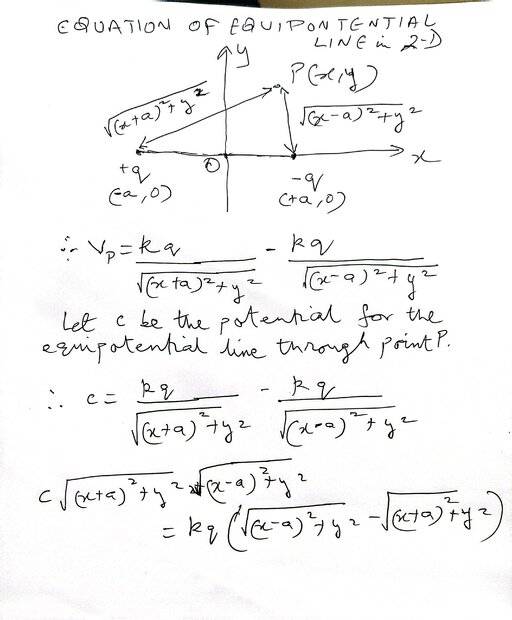 EQUATION OF EQUIPONTENTIAL
LINE in 2-D
y
P(x,y)
√(x+a)²+y²
√(x-a)²+y²
O
x
+q
(-a,0)
-q
(+a,0)
∴ Vp = kq/√(x+a)²+y² - kq/√(x-a)²+y²
Let c be the potential for the
equipotential line through point P.
∴ c = kq/√(x+a)²+y² - kq/√(x-a)²+y²
c√(x+a)²+y² √(x-a)²+y²
= kq (√(x-a)²+y² - √(x+a)²+y²)